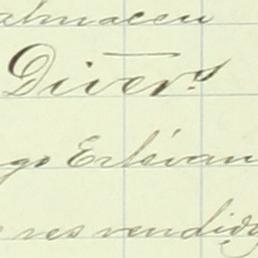 almacen
Divers.
go Estévan
res vendidos